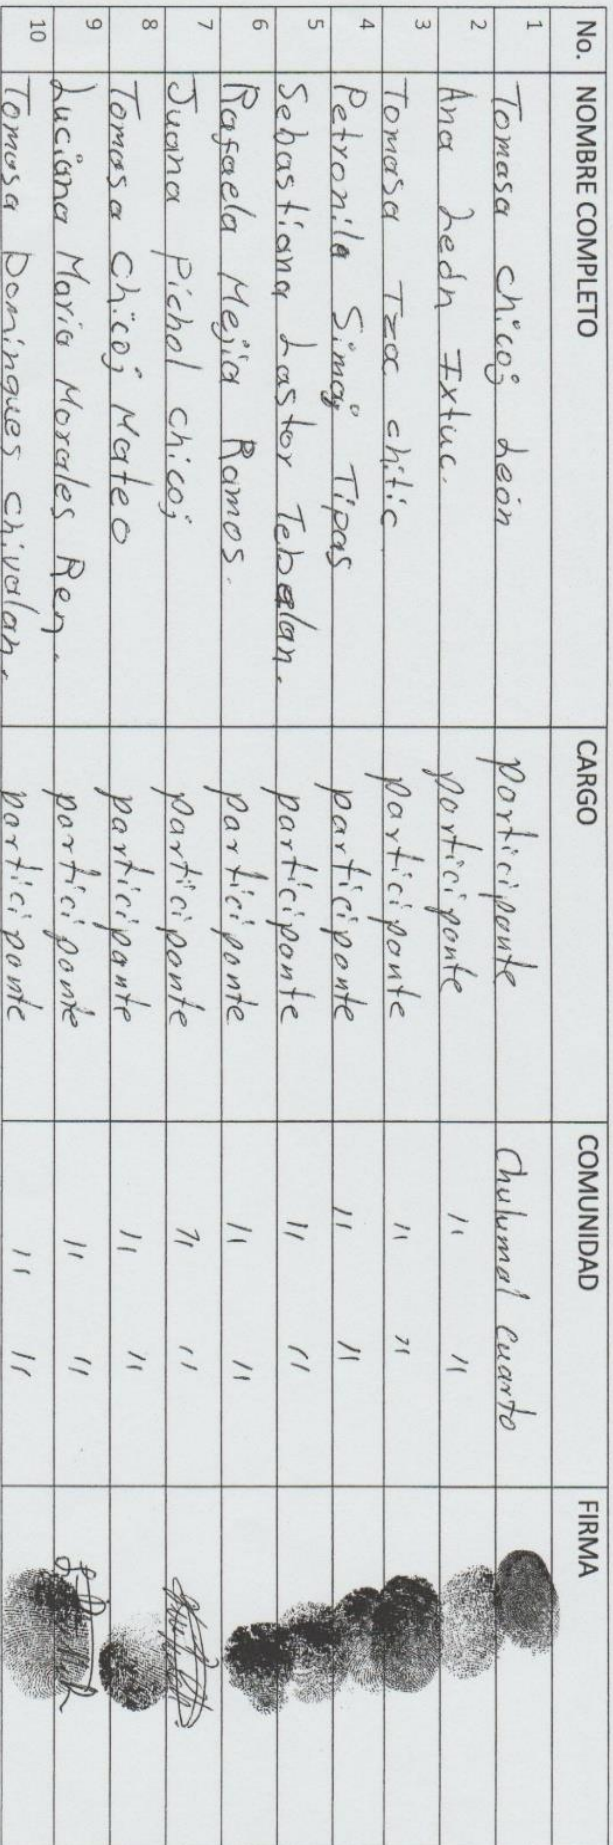 No. NOMBRE COMPLETO CARGO COMUNIDAD FIRMA
1 Tomasa chicoj León participante Chulumal cuarto
2 Ana León Ixtuc. participante " "
3 Tomasa Tzoc chitic participante " "
4 Petronila Simaj Tipas participante " "
5 Sebastiana Lastor Tebalan. participante " "
6 Rafaela Mejia Ramos. participante " "
7 Juana Pichol chicoj participante " "
8 Tomasa Chicoj Mateo participante " "
9 Luciana Maria Morales Ren. participante " "
10 Tomasa Domingues chivalan. participante " "